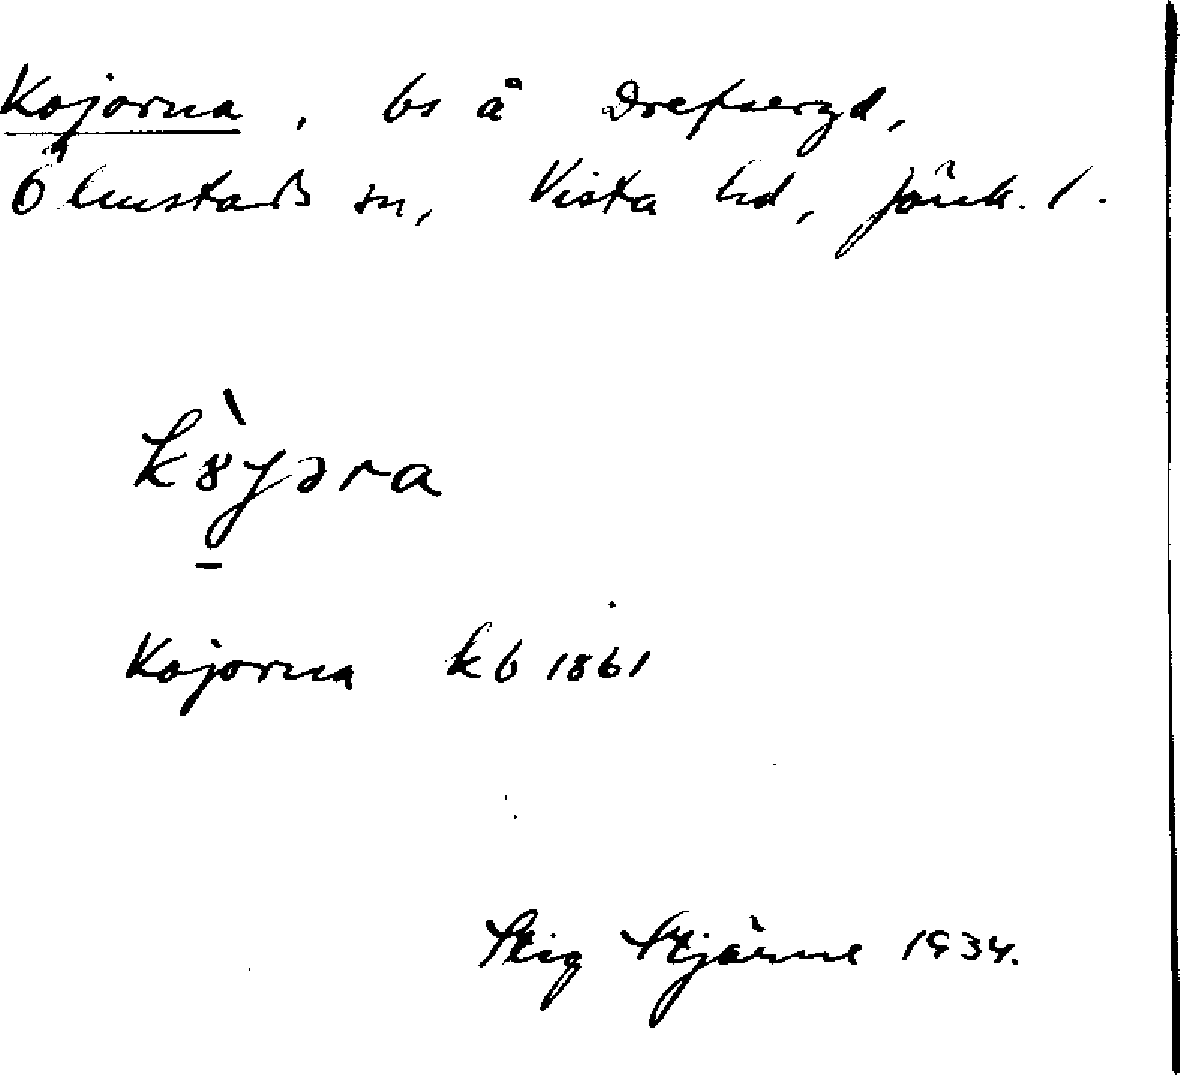 Kojorna, bs å Drefseryd,
Ölmstads sn, Vista hd, Jönk. l.
kȣ̀jəra
Kojorna kb 1861
Stig Stjärne 1934.